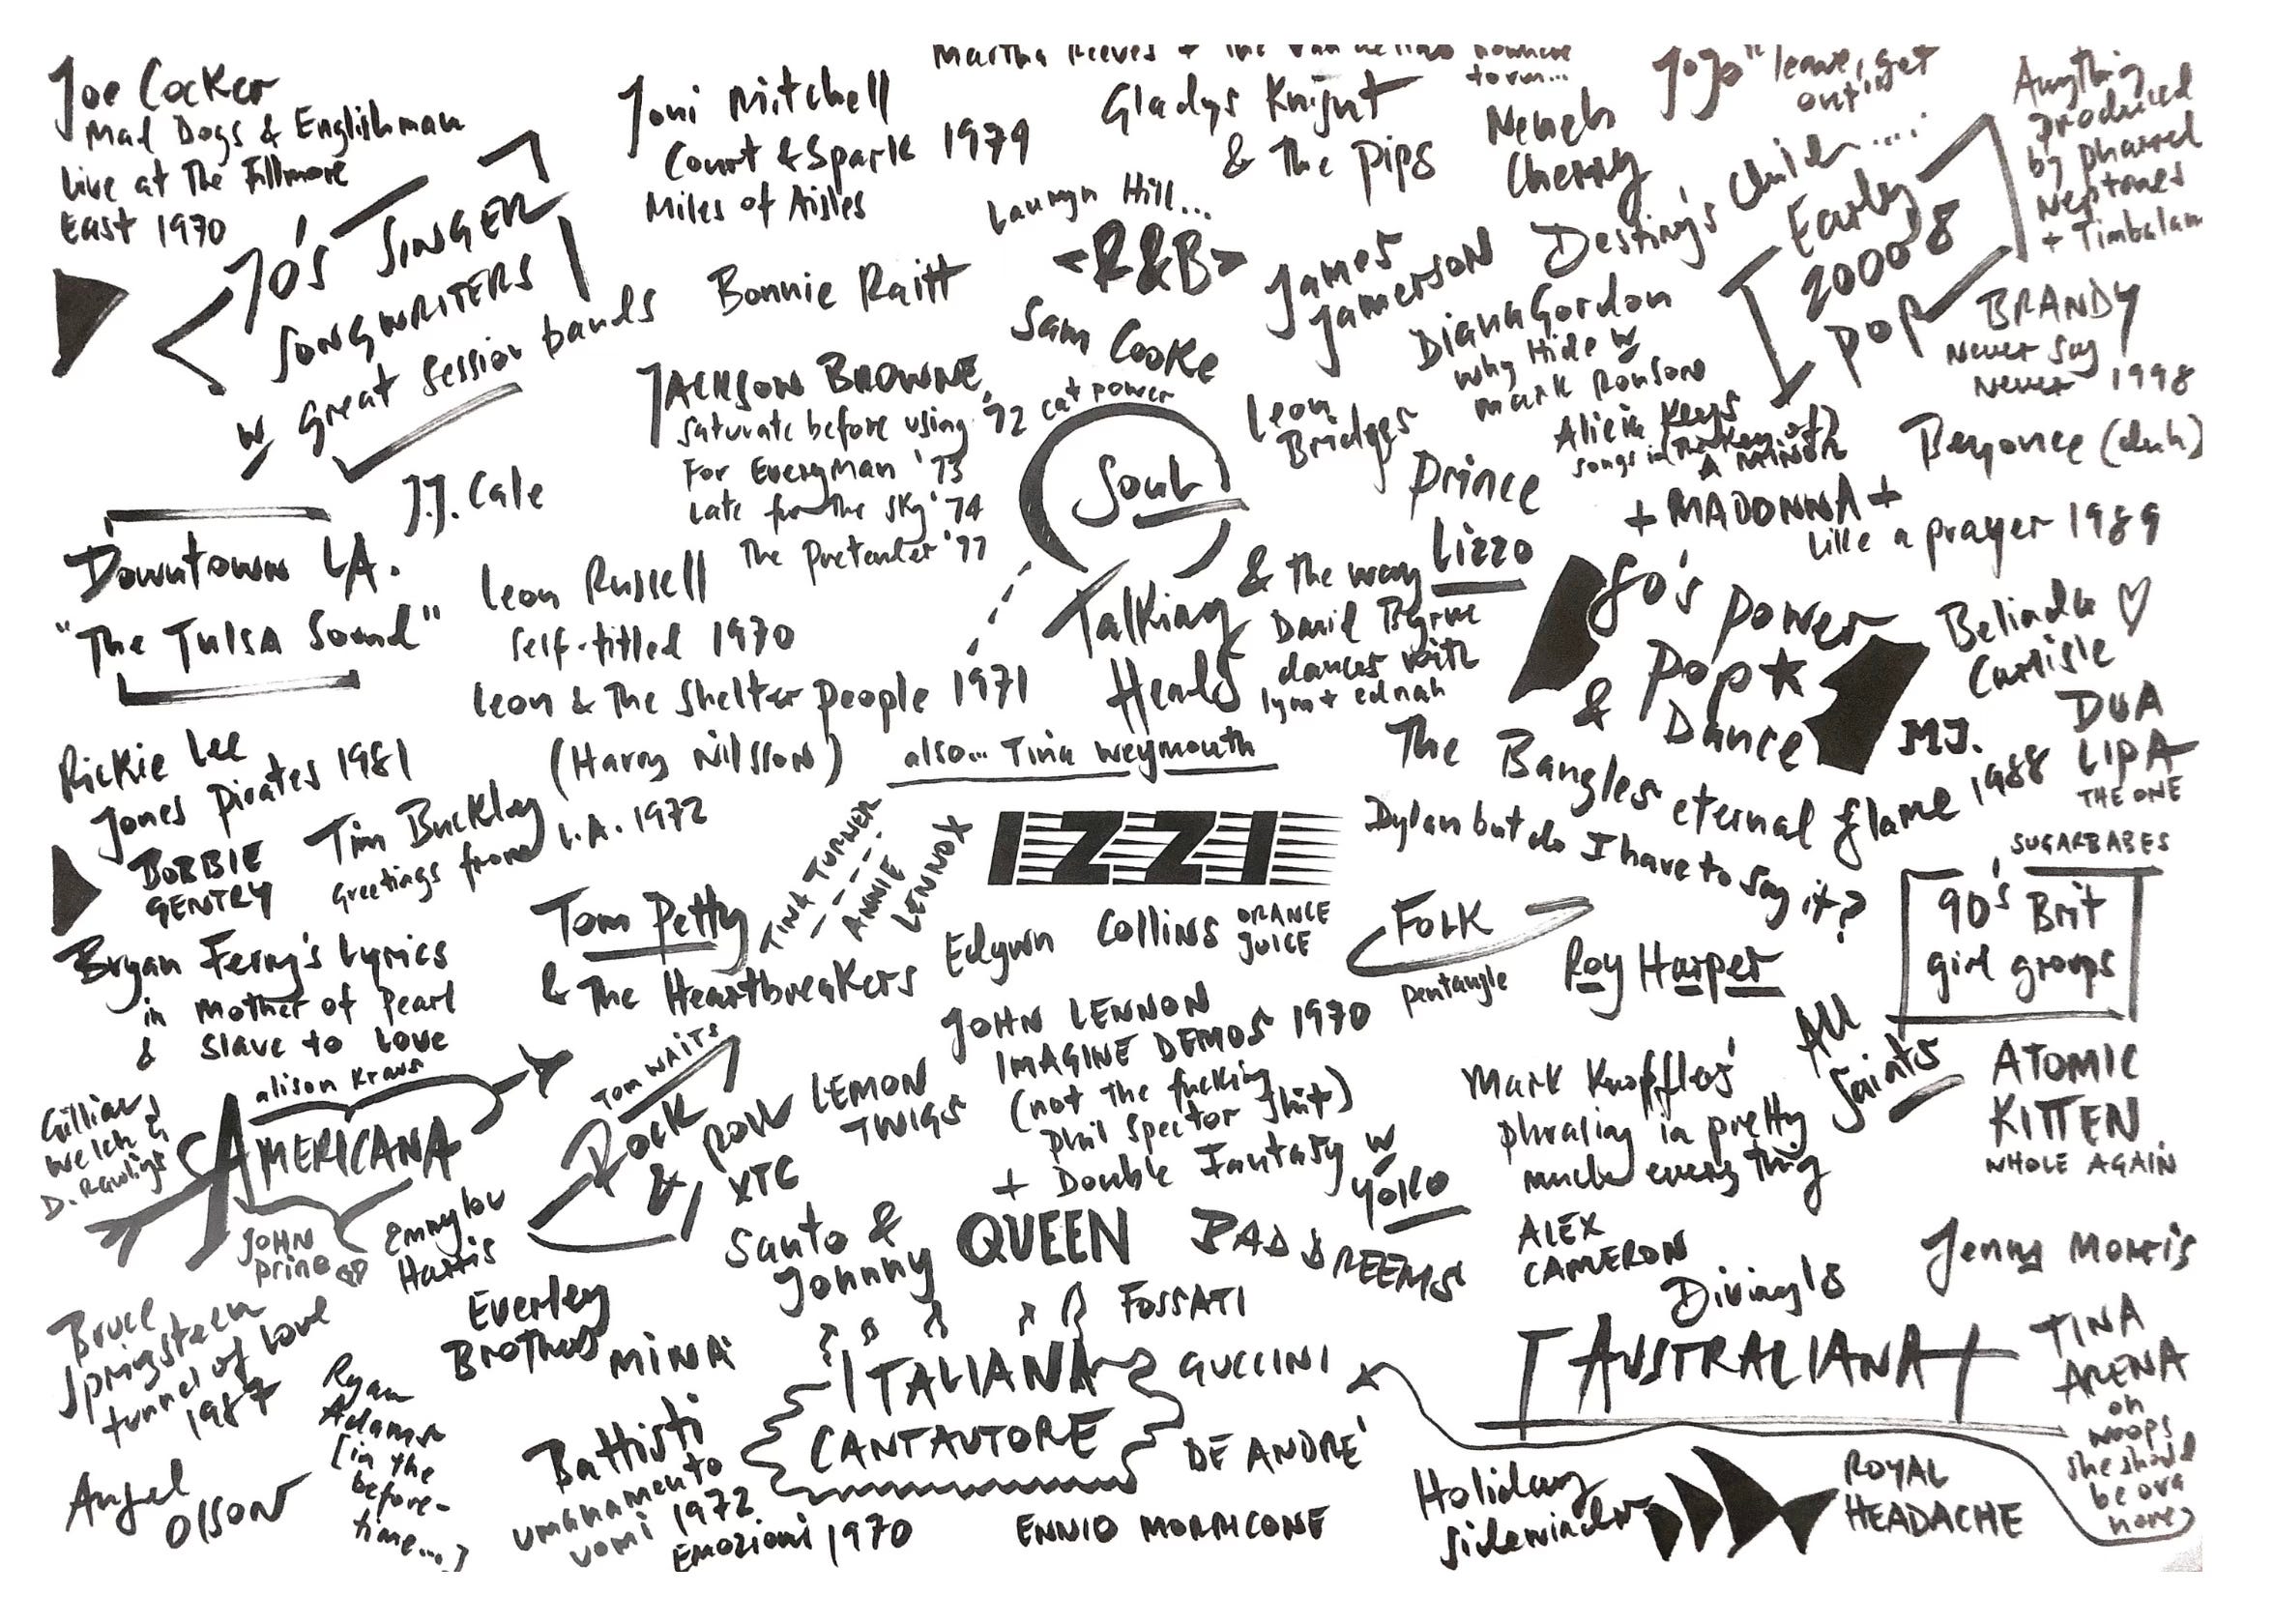 Joe Cocker
Mad Dogs & Englishman
Live at The Fillmore
East 1970
70's SINGER
SONGWRITERS
w great session bands
Joni Mitchell
Court & Spark 1974
Miles of Aisles
Bonnie Raitt
Martha Reeves + The Vandellas nowhere
to run...
Gladys Knight
& The Pips
Lauryn Hill...
<R&B>
Sam Cooke
Neneh
Cherry
JoJo "leave, get
out"
Anything
produced
by pharrel
Neptunes
+ Timbalan
Destiny's Child.....
Early
2000's
pop
James
Jamerson
Diana Gordon
Why Hide w
Mark Ronson
BRANDY
Never Say
Never 1998
JACKSON BROWNE
Saturate before using '72 cat power
For Everyman '73
Late for the Sky '74
The Pretender '77
Soul
Leon
Bridges
Alicia Keys
songs in the key of
A MINOR
Beyonce (duh)
Prince
+ MADONNA +
Like a prayer 1989
J.J. Cale
Downtown LA.
"The Tulsa Sound"
Leon Russell
Self-titled 1970
Leon & The Shelter people 1971
(Harry Nilsson)
Talking
Heads
& the way Lizzo
David Byrne
dances with
lynn + ednah
also... Tina Weymouth
80's power
pop
& Dance
Belinda ♡
Carlisle
MJ.
DUA
LIPA
THE ONE
The Bangles eternal flame 1988
Rickie Lee
Jones Pirates 1981
BOBBIE
GENTRY
Tim Buckley
Greetings from L.A. 1972
TINA TURNER
ANNIE
LENNOX
IZZI
Dylan but do I have to say it?
SUGARBABES
90's Brit
girl groups
Bryan Ferry's Lyrics
in Mother of Pearl
& Slave to Love
Tom Petty
& The Heartbreakers
Edywn Collins ORANGE
JUICE
FOLK
Pentangle
Roy Harper
All
Saints
ATOMIC
KITTEN
WHOLE AGAIN
alison Kraus
Gillian
Welch &
D. Rawligs
AMERICANA
JOHN
prine
Emmylou
Harris
TOM WAITS
ROCK
& ROLL
XTC
LEMON
TWIGS
JOHN LENNON
IMAGINE DEMOS 1970
(not the fucking
phil spector shit)
+ Double Fantasy w
Yoko
Mark Knopflers'
phrasing in pretty
much every thing
Santo &
Johnny
QUEEN
BAD DREEMS
ALEX
CAMERON
Divinyls
Jenny Morris
Bruce
Springsteen
tunnel of love
1987
Everley
Brothers
MINA
FOSSATI
ITALIANA
CANTAUTORE
GUCCINI
DE ANDRE'
ENNIO MORRICONE
AUSTRALIANA
TINA
ARENA
oh
woops
she should
be ova
here
Angel
Olson
Ryan
Adams
(in the
before-
time...)
Battisti
umanamento
uomi 1972
Emozioni 1970
Holiday
Sidewinder
ROYAL
HEADACHE